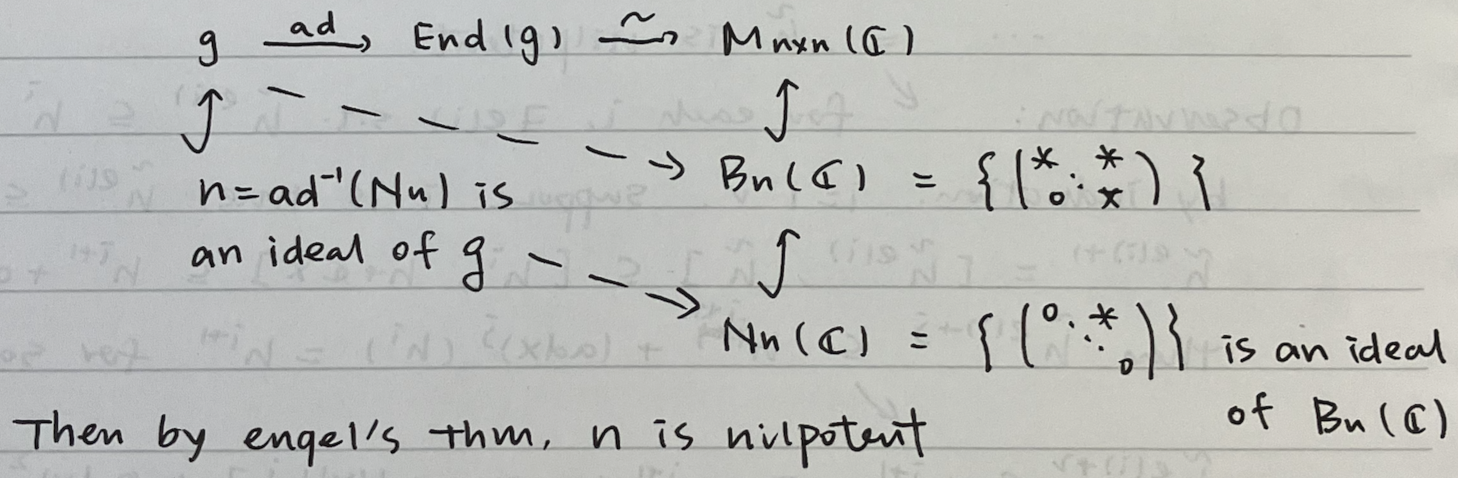 g —ad→ End(g) —~→ Mn×n(ℂ)
n=ad⁻¹(Nn) is → Bn(ℂ) = { (* . * 0 . *) }
an ideal of g
→ Nn(ℂ) = { (0 . * . 0) } is an ideal
of Bn(ℂ)
Then by engel's thm, n is nilpotent